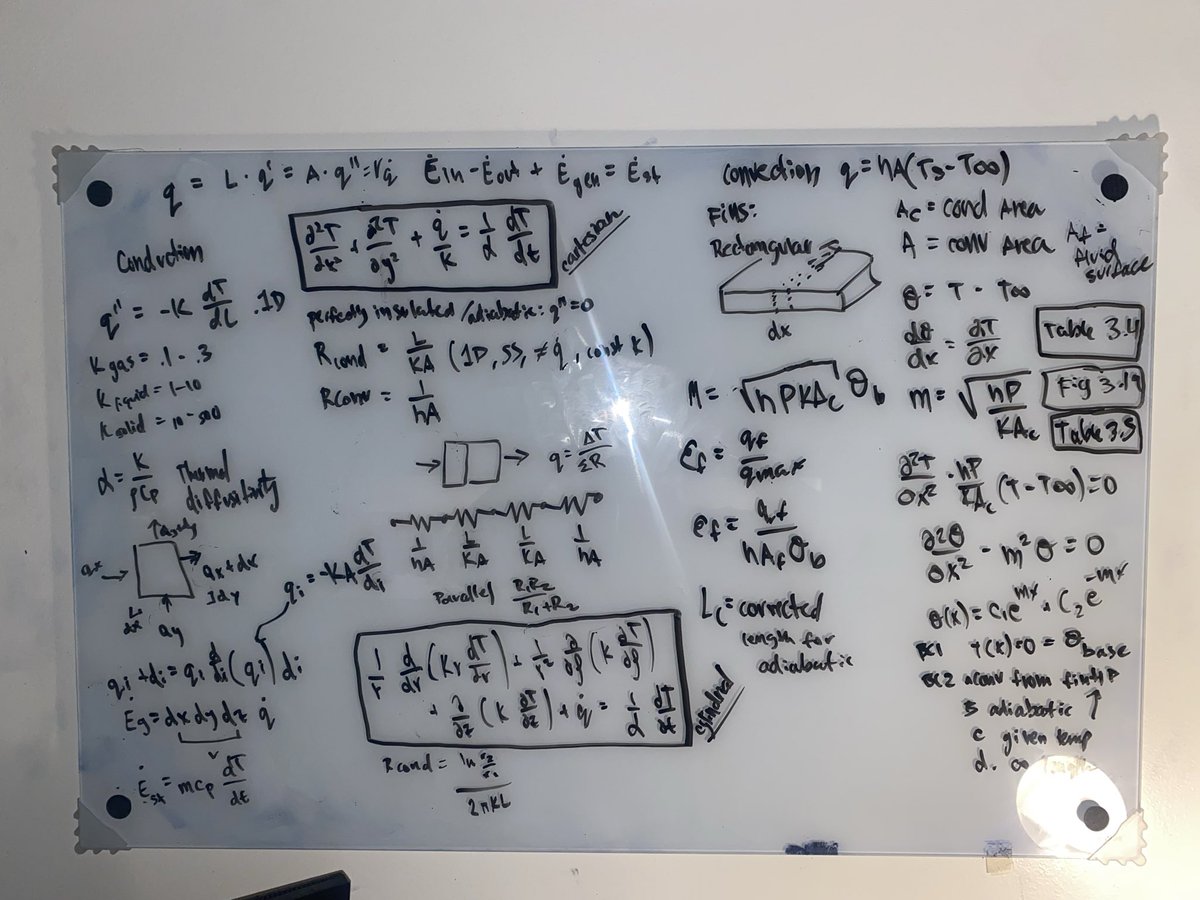 q = L · q' = A · q'' = V q̇
Ėin - Ėout + Ėgen = Ėst
Conduction
q'' = -K dT/dL . 1D
K gas = .1 - .3
K liquid = 1-10
K solid = 10-500
α = K/ρCp Thermal diffusivity
qx
qx+dx
qy
qi = -KA dT/di
qi+di = qi d/di (qi) di
Ėg = dx dy dz q̇
v
Ėst = mcp dT/dt
∂²T/∂x² + ∂²T/∂y² + q̇/K = 1/α dT/dt
cartesian
perfectly insulated/adiabatic: q'' = 0
Rcond = L/KA (1D, SS, ≠ q̇, const K)
Rconv = 1/hA
q = ΔT/ΣR
1/hA L/KA L/KA 1/hA
Parallel R1R2/R1+R2
1/r d/dr (Kr dT/dr) + 1/r² ∂/∂φ (K ∂T/∂φ)
+ ∂/∂z (K ∂T/∂z) + q̇ = 1/α ∂T/∂t
Rcond = ln r2/r1 / 2πKL
convection q = hA(Ts - T∞)
Fins:
Rectangular
dx
M = √hPKAc θb
εf = qf/qmax
ef = qf/hAfθb
Lc = corrected
length for
adiabatic
Ac = cond Area
A = conv Area
Af = fluid surface
θ = T - T∞
dθ/dx = ∂T/∂x
Table 3.4
m = √hP/KAc
Fig 3.19
Table 3.5
∂²T/∂x² · hP/KAc (T - T∞) = 0
∂²θ/∂x² - m²θ = 0
θ(x) = C1e^mx + C2e^-mx
BC1 T(x)=0 = θbase
BC2 a conv from fin tip
B adiabatic
c given temp
d. ∞